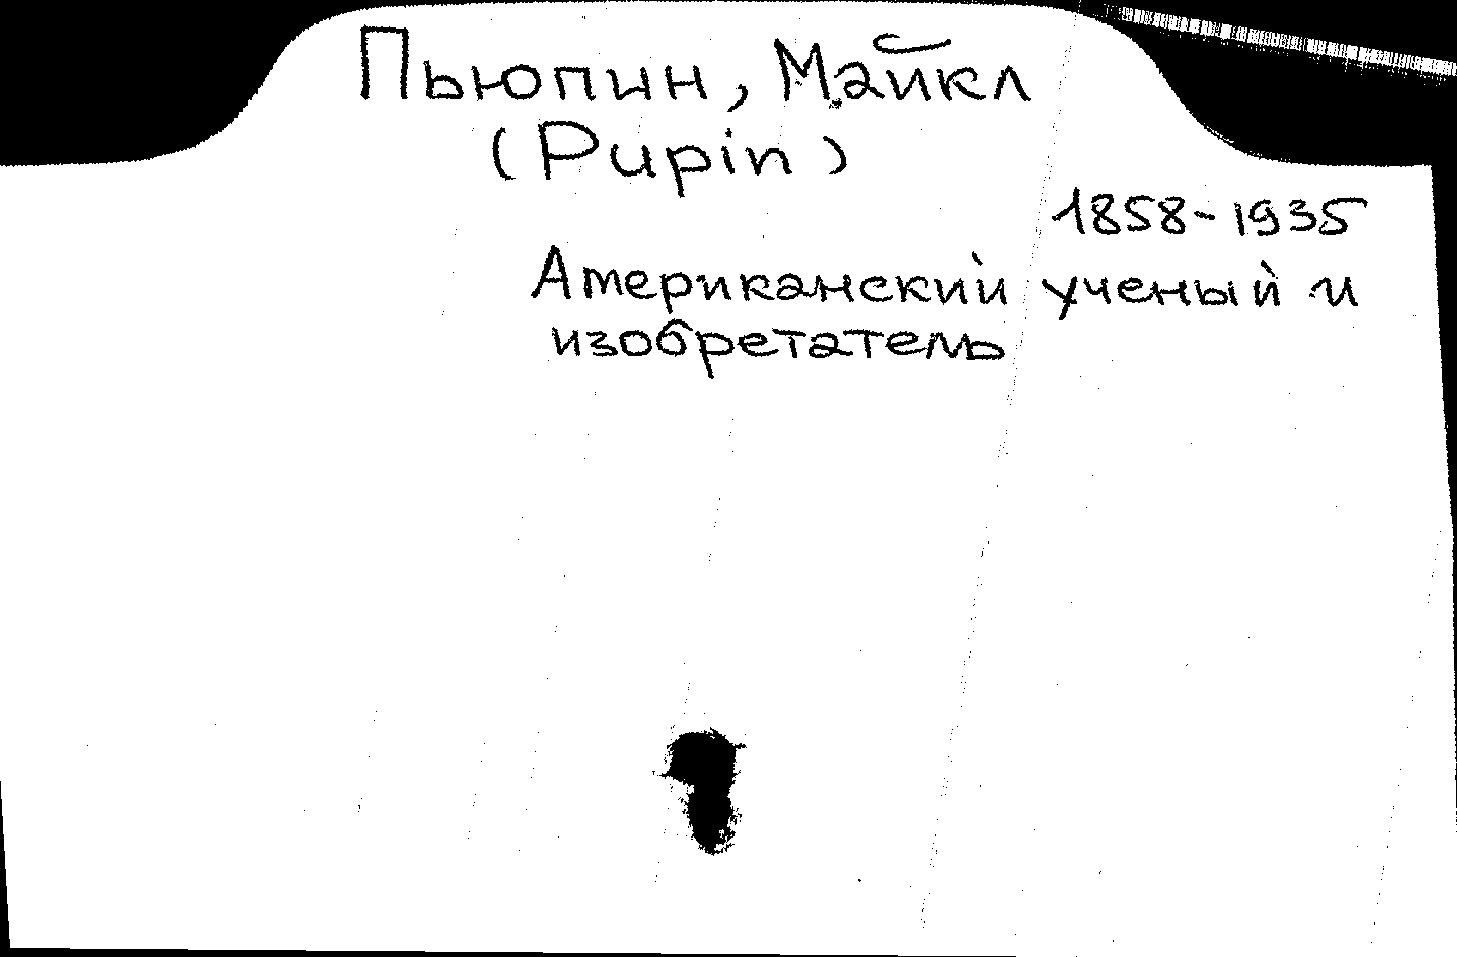 Пьюпин, Майкл
(Pupin)
1858-1935
Американский ученый и
изобретатель